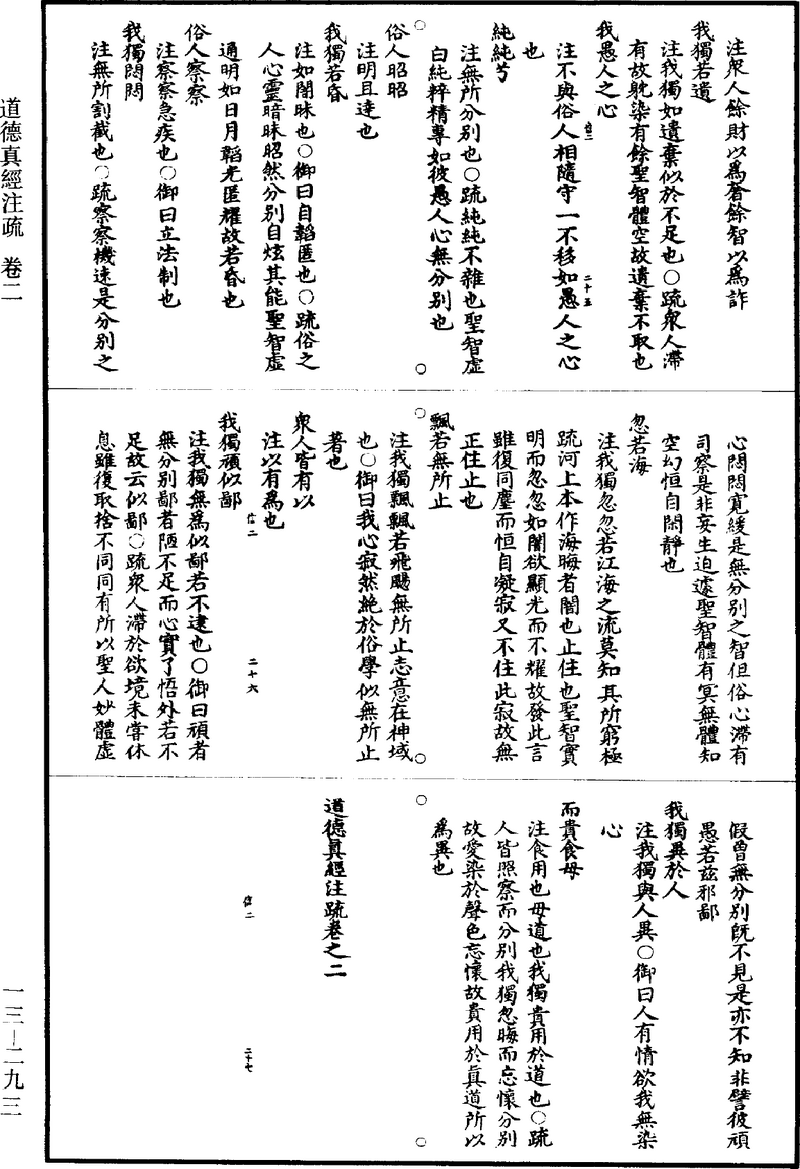 注衆人餘財以爲奢餘智以爲詐
我獨若遺
注我獨如遺棄似於不足也○疏衆人滯
有故躭染有餘聖智體空故遺棄不取也
我愚人之心
注不與俗人相隨守一不移如愚人之心
也
信二
二十五
純純兮
注無所分別也○疏純純不雜也聖智虛
白純粹精專如彼愚人心無分別也
俗人昭昭
注明且達也
我獨若昏
注如闇昧也○御曰自韜匿也○疏俗之
人心靈暗昧昭然分別自炫其能聖智虛
通明如日月韜光匿耀故若昏也
俗人察察
注察察急疾也○御曰立法制也
我獨悶悶
注無所割截也○疏察察機速是分別之
心悶悶寬緩是無分別之智但俗心滯有
司察是非妄生迫遽聖智體有冥無體知
空幻恒自閑靜也
忽若海
注我獨忽忽若江海之流莫知其所窮極
疏河上本作海晦者闇也止住也聖智實
明而忽忽如闇欲顯光而不耀故發此言
雖復同塵而恒自凝寂又不住此寂故無
正住止也
飄若無所止
注我獨飄飄若飛颺無所止志意在神域
也○御曰我心寂然絶於俗學似無所止
著也
衆人皆有以
注以有爲也
信二
二十六
我獨頑似鄙
注我獨無爲似鄙若不逮也○御曰頑者
無分別鄙者陋不足而心實了悟外若不
足故云似鄙○疏衆人滯於欲境未嘗休
息雖復取捨不同同有所以聖人妙體虛
假曾無分別旣不見是亦不知非譬彼頑
愚若茲邪鄙
我獨異於人
注我獨與人異○御曰人有情欲我無染
心
而貴食母
注食用也母道也我獨貴用於道也○疏
人皆照察而分別我獨忽晦而忘懷分別
故愛染於聲色忘懷故貴用於眞道所以
爲異也
道德真經注疏卷之二
信二
二十七
道德真經注疏 卷二
一三—二九三